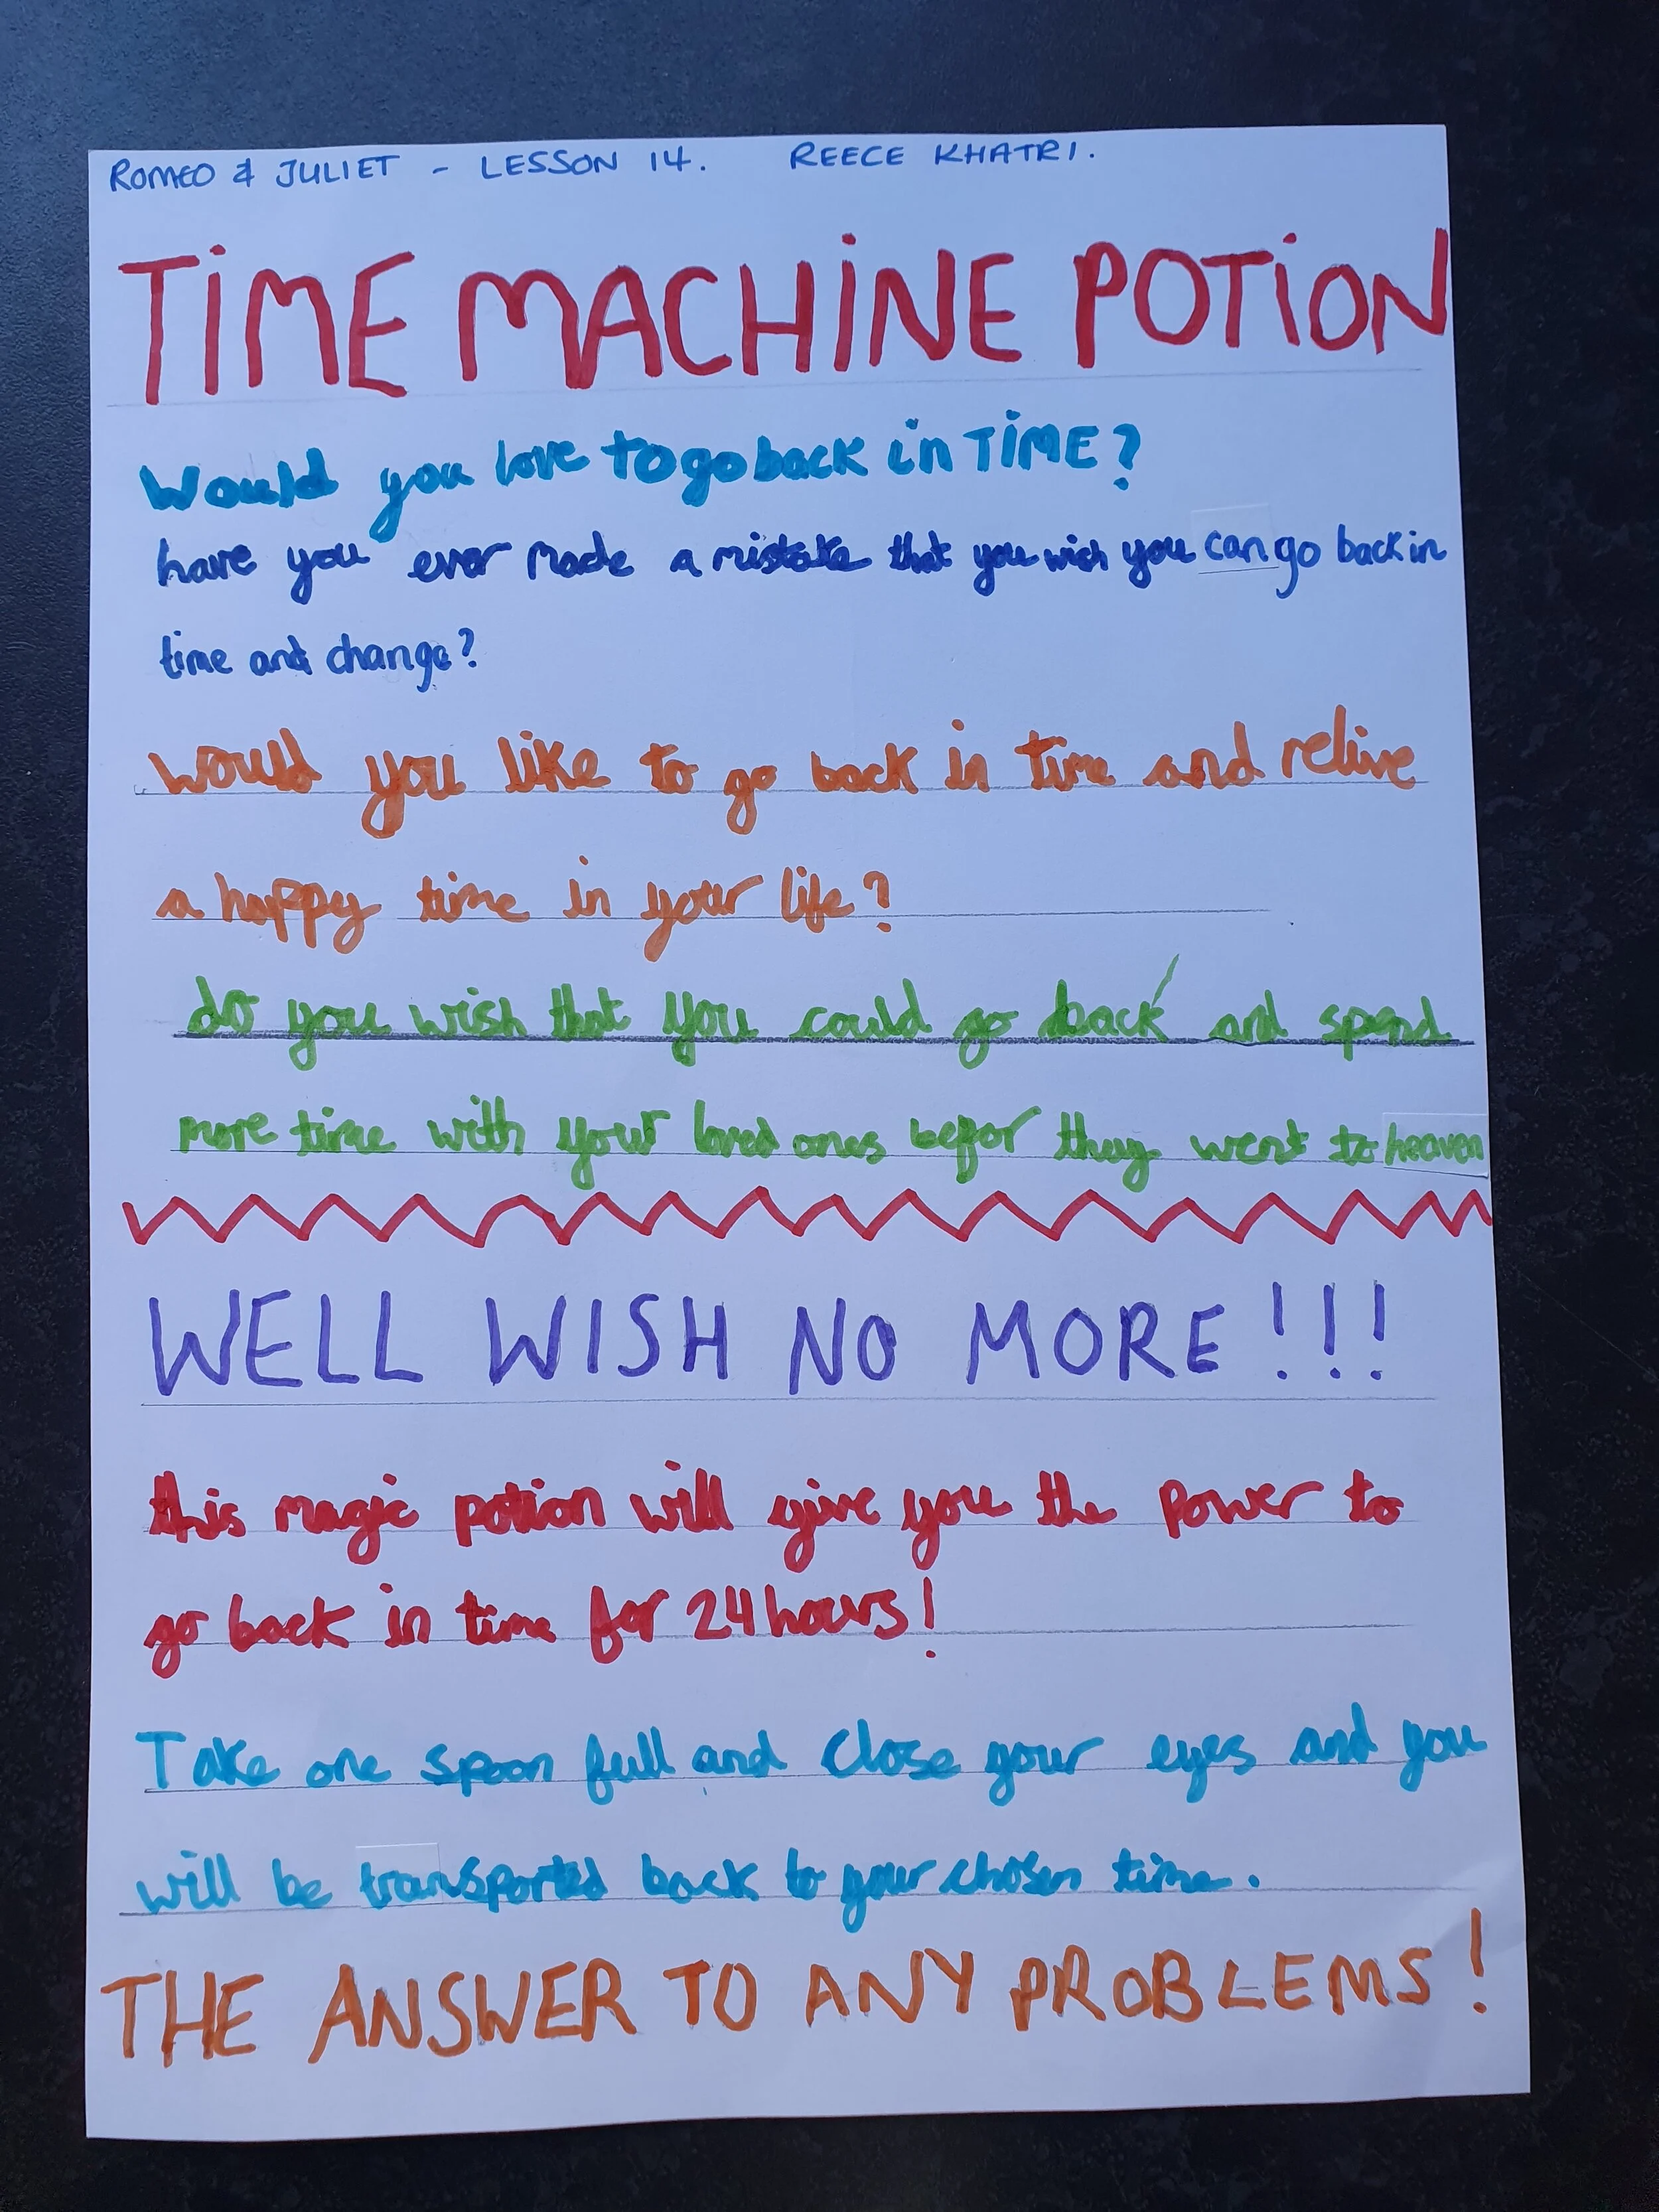 ROMEO & JULIET - LESSON 14. REECE KHATRI.
TiME MACHiNE POTiON
Would you love to go back in TiME?
have you ever Made a mistake that you wish you can go back in
time and change?
would you like to go back in time and relive
a happy time in your life?
do you wish that you could go back and spend
more time with your loved ones befor they went to heaven
WELL WISH NO MORE!!!
this magic potion will give you the power to
go back in time for 24 hours!
Take one spoon full and close your eyes and you
will be transported back to your chosen time.
THE ANSWER TO ANY PROBLEMS!